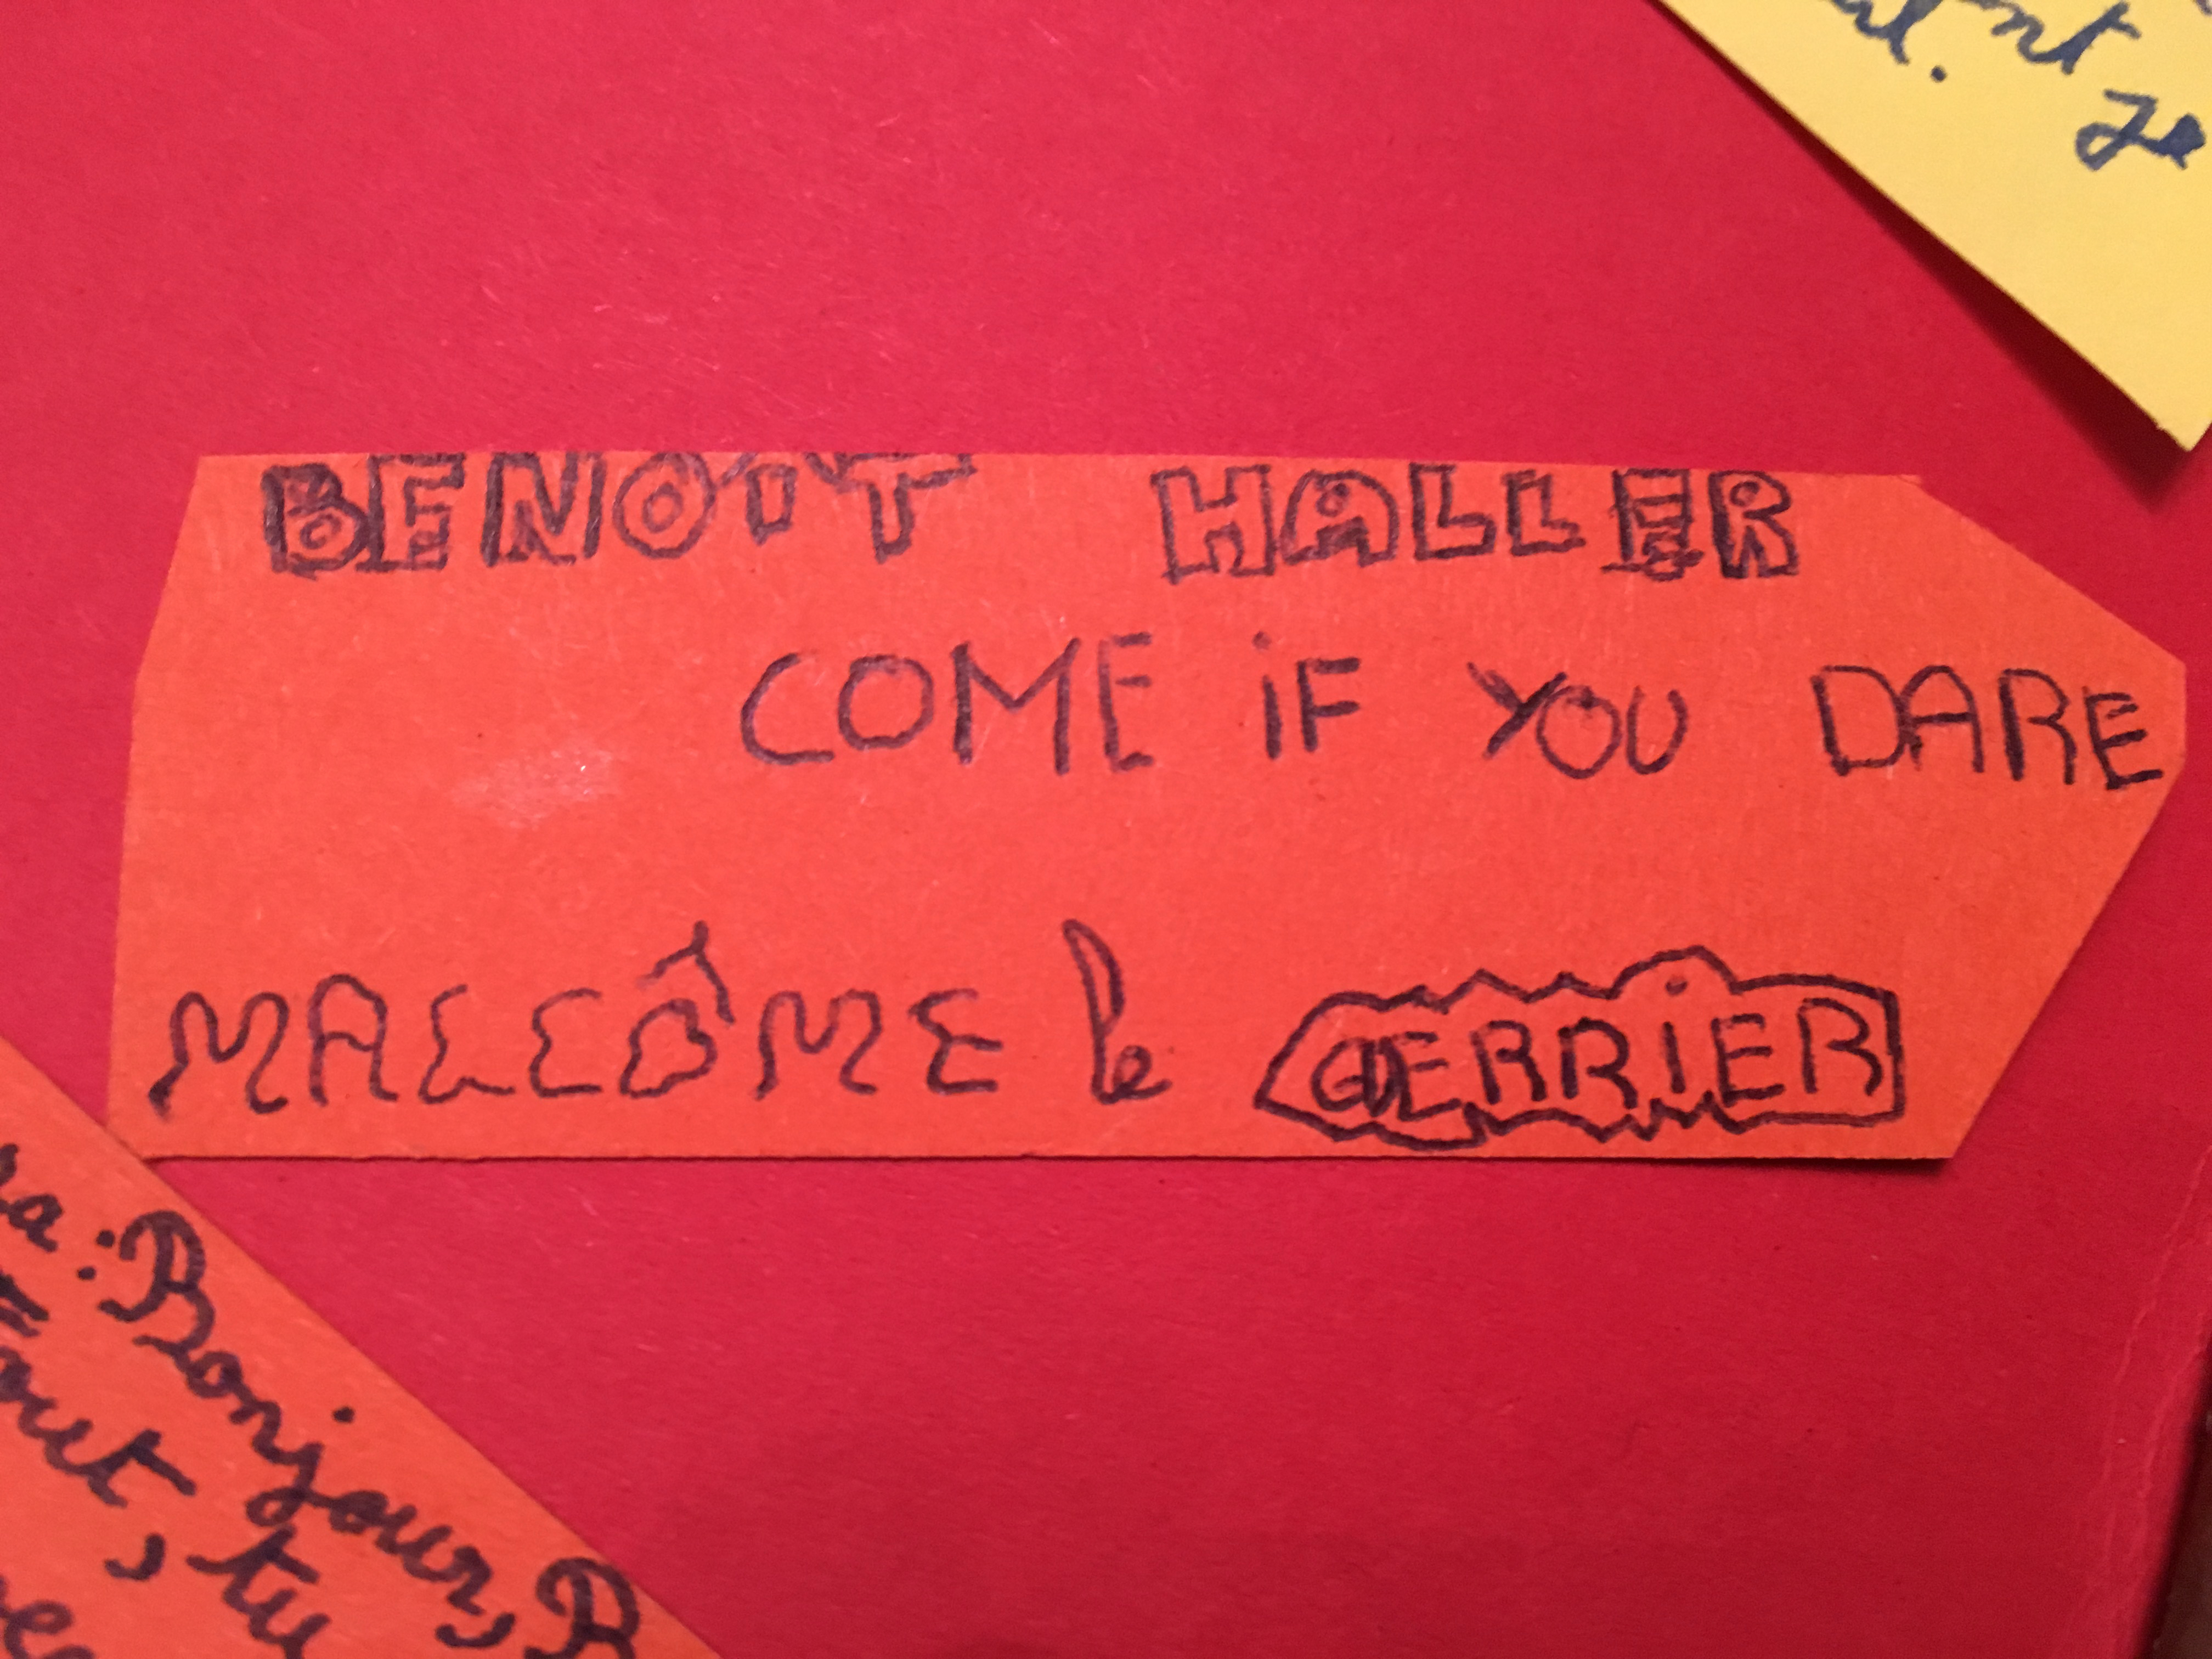 nt je
BENOIT HALLER
COME iF YOU DARE
MALCÔME le GERRiER
Bonjour,
tout, tu